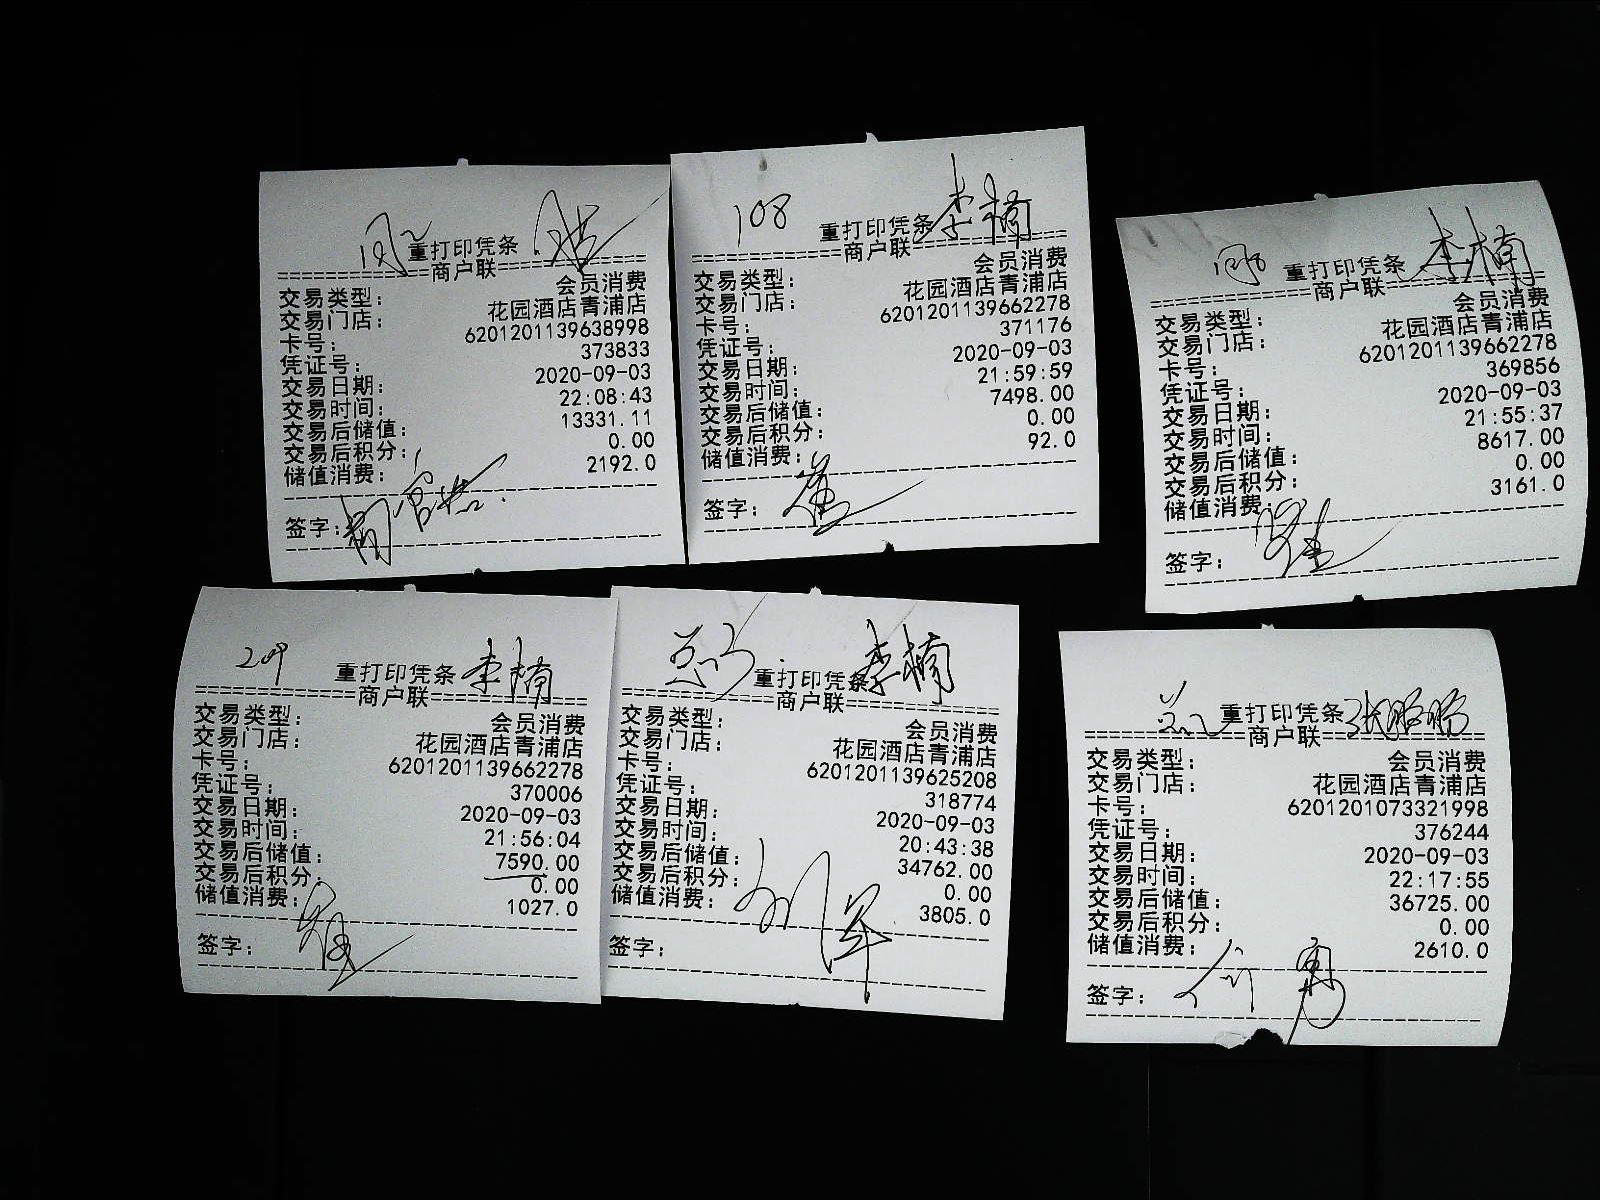 重打印凭条
商户联
交易类型： 会员消费
交易门店： 花园酒店青浦店
卡号： 6201201139638998
凭证号： 373833
交易日期： 2020-09-03
交易时间： 22:08:43
交易后储值： 13331.11
交易后积分： 0.00
储值消费： 2192.0
签字：
108 重打印凭条 李楠
商户联
交易类型： 会员消费
交易门店： 花园酒店青浦店
卡号： 6201201139662278
凭证号： 371176
交易日期： 2020-09-03
交易时间： 21:59:59
交易后储值： 7498.00
交易后积分： 0.00
储值消费： 92.0
签字：
重打印凭条 李楠
商户联
交易类型： 会员消费
交易门店： 花园酒店青浦店
卡号： 6201201139662278
凭证号： 369856
交易日期： 2020-09-03
交易时间： 21:55:37
交易后储值： 8617.00
交易后积分： 0.00
储值消费： 3161.0
签字：
重打印凭条 李楠
商户联
交易类型： 会员消费
交易门店： 花园酒店青浦店
卡号： 6201201139662278
凭证号： 370006
交易日期： 2020-09-03
交易时间： 21:56:04
交易后储值： 7590.00
交易后积分： 0.00
储值消费： 1027.0
签字：
重打印凭条 李楠
商户联
交易类型： 会员消费
交易门店： 花园酒店青浦店
卡号： 6201201139625208
凭证号： 318774
交易日期： 2020-09-03
交易时间： 20:43:38
交易后储值： 34762.00
交易后积分： 0.00
储值消费： 3805.0
签字：
重打印凭条
商户联
交易类型： 会员消费
交易门店： 花园酒店青浦店
卡号： 6201201073321998
凭证号： 376244
交易日期： 2020-09-03
交易时间： 22:17:55
交易后储值： 36725.00
交易后积分： 0.00
储值消费： 2610.0
签字：